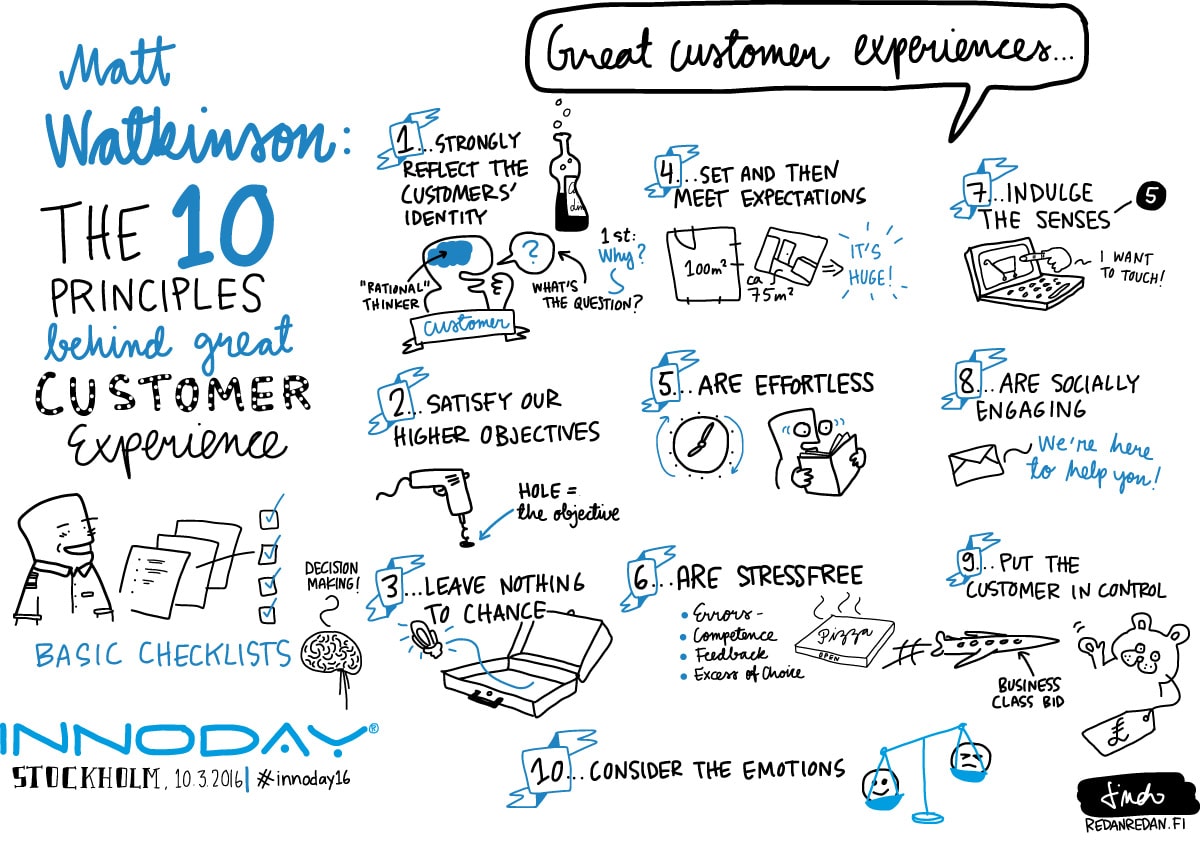 Matt
Watkinson:
THE 10
PRINCIPLES
behind great
CUSTOMER
Experience
BASIC CHECKLISTS
DECISION
MAKING!
INNODAY®
STOCKHOLM, 10.3.2016 | #innoday16
Great customer experiences...
1...STRONGLY
REFLECT THE
CUSTOMERS'
IDENTITY
"RATIONAL"
THINKER
?
WHAT'S
THE QUESTION?
1st:
Why?
customer
2...SATISFY OUR
HIGHER OBJECTIVES
HOLE =
the objective
3...LEAVE NOTHING
TO CHANCE
4...SET AND THEN
MEET EXPECTATIONS
100m²
ca
75m²
IT'S
HUGE!
5...ARE EFFORTLESS
6...ARE STRESSFREE
• Errors-
• Competence
• Feedback
• Excess of Choice
Pizza
OPEN
7...INDULGE
THE SENSES
5
I WANT
TO TOUCH!
8...ARE SOCIALLY
ENGAGING
We're here
to help you!
9...PUT THE
CUSTOMER IN CONTROL
#
BUSINESS
CLASS BID
£
10...CONSIDER THE EMOTIONS
REDANREDAN.FI